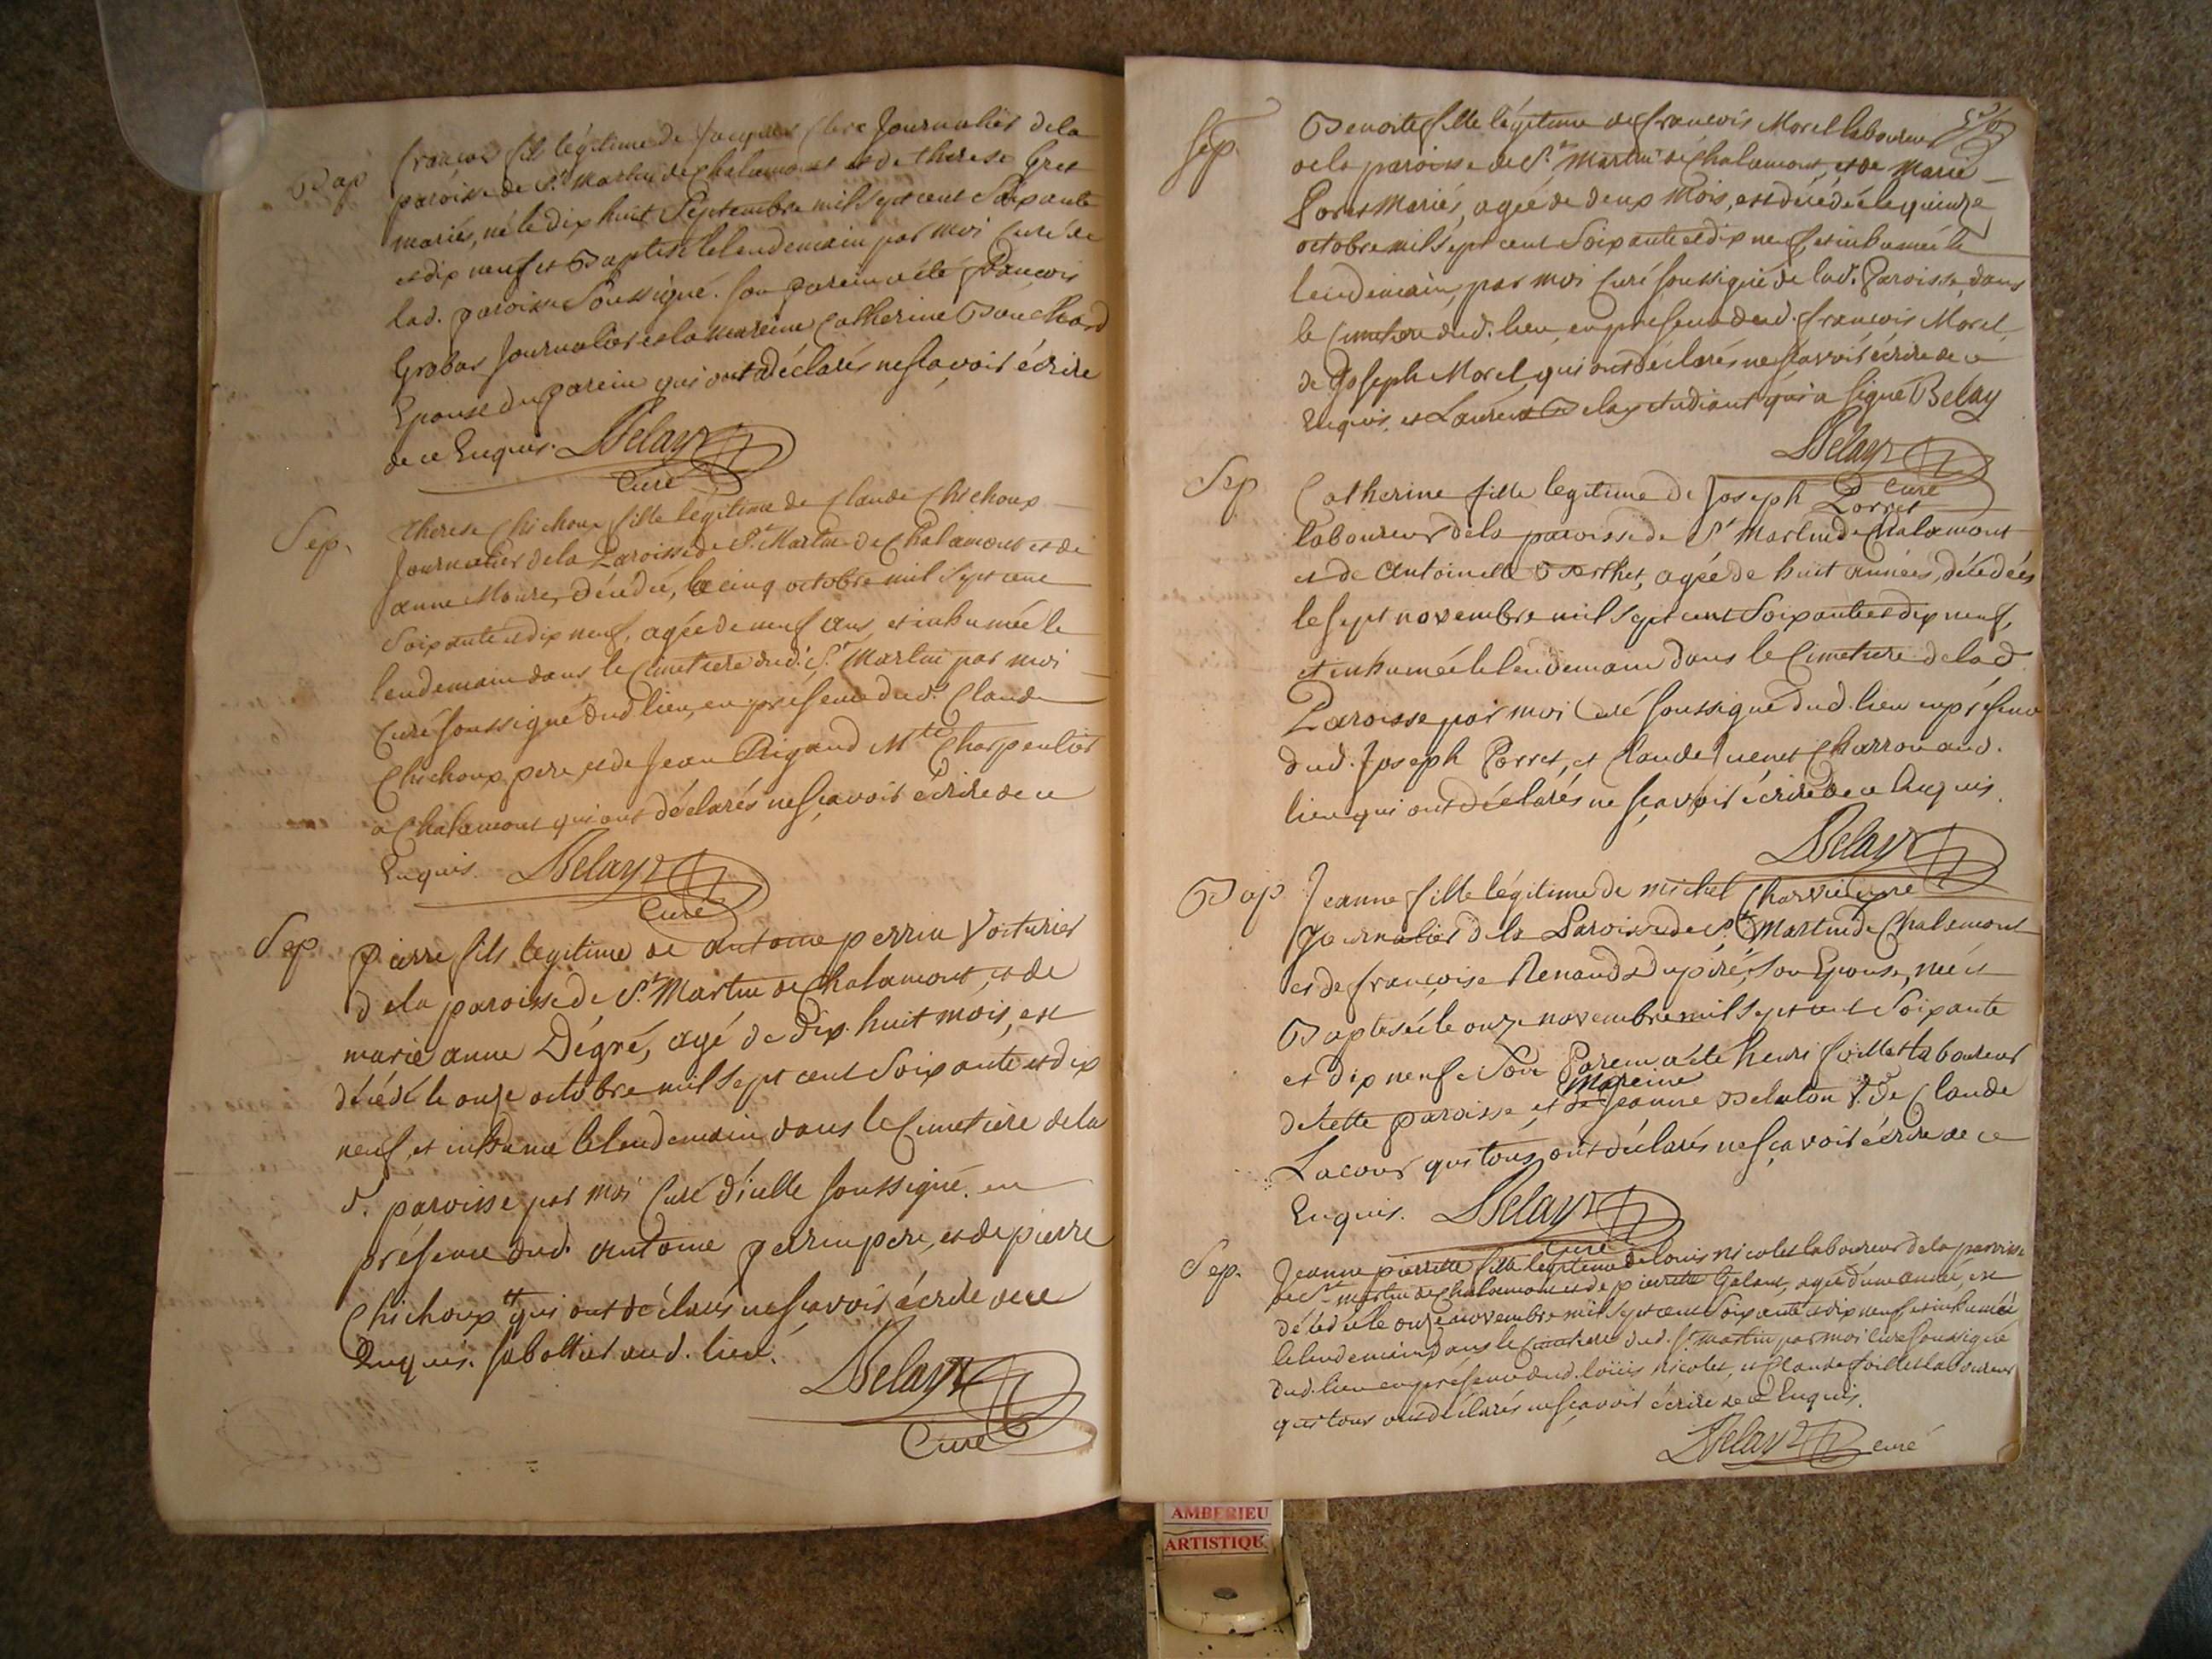 Bap
françois fils légitime de Jacques Clerc Journalier dela
paroisse de St. Martin de Chalamont et de therese Gret
mariés, né le dix huit Septembre mil sept cent Soixante
et dix neuf et Baptisé le lendemain par moi Curé de
lad. paroisse Soussigné. son parein a été françois
Grobas Journalier et la mareine Catherine Bouchard
Epouse du parein qui ont déclarés ne sçavoir écrire
de ce Enquis. Belay
Curé
Sep.
therese Chichoux fille légitime de Claude Chichoux
Journalier dela Paroisse de St. Martin de Chalamont et de
anne décédée, le cinq octobre mil Sept cent
Soixante et dix neuf, agée de neuf ans, et inhumée le
lendemain dans le Cimetiere dud. St. Martin par moi
Curé soussigné dud lieu, en présence dud. Claude
Chichoux pere, et de Jean Rigaud Mtre Charpentier
a Chalamont qui ont déclarés ne sçavoir écrire de ce
Enquis. Belay
Curé
Sep
Pierre fils legitime de antoine perrin Voiturier
dela paroisse de St. Martin de Chalamont, et de
marie anne Dégré, agé de Dix huit mois, est
décédé le onze octobre mil Sept cent Soixante et dix
neuf, et inhumé le lendemain dans le Cimetiere de la
d. paroisse par moi Curé d'icelle soussigné. en
présence dud. antoine perrin pere, et de pierre
Chichoux qui ont déclarés ne sçavoir écrire de ce
Enquis. sabottier aud. lieu.
Belay
Curé
Sep.
Benoite fille légitime de françois Morel laboureur
de la paroisse de St. Martin de Chalamont, et de Marie
Poret Mariés, agée de deux Mois, est décédée le quinze
octobre mil Sept cent Soixante et dix neuf et inhumée le
lendemain, par moi Curé soussigné de lad. Paroisse, dans
le Cimetiere dud. lieu, en présence dud. françois Morel,
de Joseph Morel, qui ont déclarés ne sçavoir écrire de ce
Enquis, et Laurent Belay étudiant qui a signé Belay
Belay
Curé
Sep
Catherine fille legitime de Joseph Porret
laboureur dela paroisse de St Martin de Chalamont
et de Antoinette Berthet, agée de huit années, décédée
le sept novembre mil sept cent Soixante et dix neuf,
et inhumée le lendemain dans le Cimetiere de lad
Paroisse par moi Curé soussigné dud. lieu en présence
dud. Joseph Porret, et Claude Juenet Charron aud.
lieu qui ont déclarés ne sçavoir écrire de ce Enquis.
Belay
Curé
Bap
Jeanne fille légitime de michel Charvieu
Journalier dela Paroisse de St. Martin de Chalamont
et de françoise Renaud Dupéré, son Epouse, née et
Baptisée le onze novembre mil sept cent Soixante
et dix neuf. Son Parein a été henri foillet laboureur
mareine
de cette paroisse, et Jeanne Delaton V.e De Claude
Lacour qui tous ont déclarés ne sçavoir écrire de ce
Enquis. Belay
Curé
Sep.
Jeanne pierrette fille legitime de Louis nicolet laboureur dela paroisse
de St. martin de Chalamont et de pierrette Galand, agée d'une année, est
décédée le onze novembre mil Sept cent Soixante et dix neuf et inhumée
le lendemain dans le Cimetiere dud. St. martin par moi Curé soussigné
dud. lieu en présence dud. louis nicolet, et Claude foillet laboureur
qui tous ont déclarés ne sçavoir écrire de ce Enquis.
Belay curé
AMBERIEU
ARTISTIQU